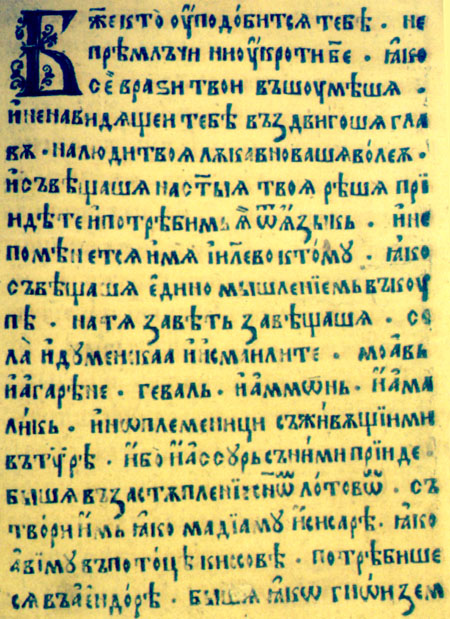 Б҃же кто ѹ҆подобитсѧ тебѣ · не
прѣмлъчи ни ѹ҆кроти б҃е · ꙗ҆ко
се врази твои въшоумѣшѧ ·
и҆ ненавидѧщеи тебѣ въздвигошѧ гла
вѫ · на люди твоѧ лѫкавноваша волеѫ ·
и҆ съвѣщашѧ на ст҃ыѧ твоѧ рѣшѧ прїи
идѣте и҆ потрѣбимь ѧ҆ ѿ ѧ҆зыкь · и҆ не
помѣнетсѧ имѧ і҆ил҃ево ктомꙋ · ꙗ҆ко
съвѣщашѧ е҆диномышленїемь въкоу
пѣ · на тѧ завѣть завѣщашѧ · се
ла̀ и҆дꙋменскаа и҆ исмаилите · моавь
и҆ агарѣне · геваль · и҆ аммѡнь · и҆ ама
ликь · и҆ноплеменици съживѧщїими
въ тѵ́рѣ · и҆бо и҆ ассꙋрь съ ними прїиде ·
бышѧ въ застѫпленїе сн҃ѡⷡ҇ лотовѡⷡ҇ · съ
твори и҆мь ꙗ҆ко мадїамꙋ и҆ сисарѣ · ꙗ҆ко
а҆вімꙋ въ потоцѣ киссовѣ · потрѣбише
сѧ въ а҆ендорѣ · бышѧ ꙗ҆кѡ гнѡи зем